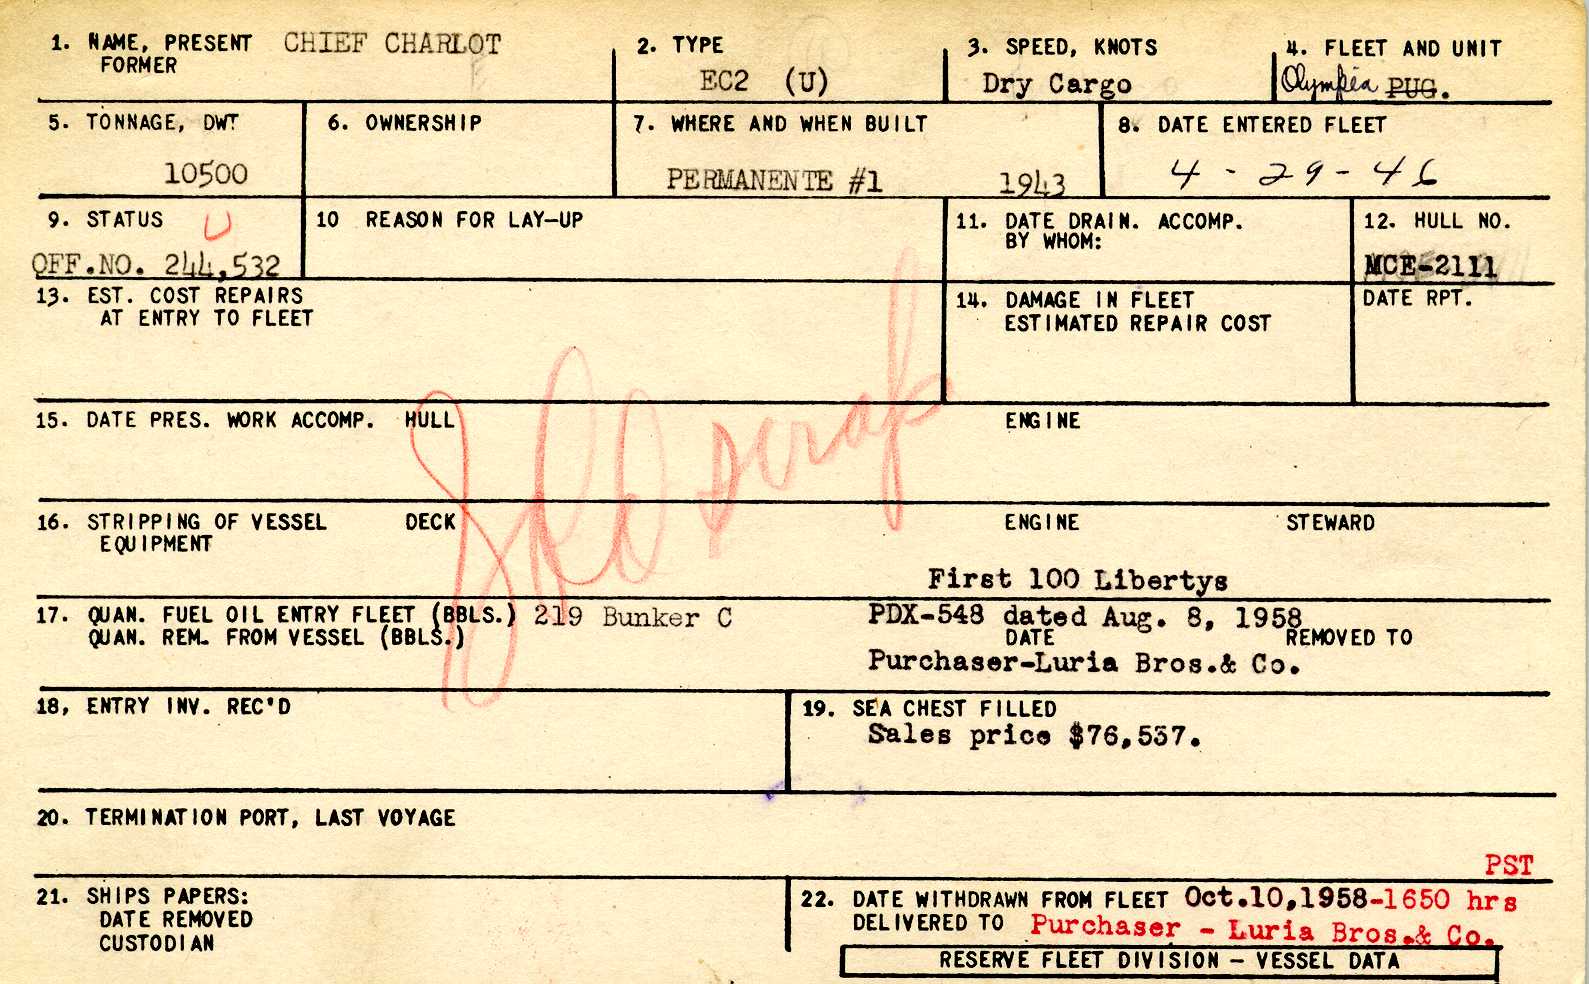 1. NAME, PRESENT CHIEF CHARLOT
FORMER
2. TYPE
EC2 (U)
3. SPEED, KNOTS
Dry Cargo
4. FLEET AND UNIT
Olympia PUG.
5. TONNAGE, DWT
10500
6. OWNERSHIP
7. WHERE AND WHEN BUILT
PERMANENTE #1 1943
8. DATE ENTERED FLEET
4-29-46
9. STATUS U
OFF.NO. 244,532
10 REASON FOR LAY-UP
11. DATE DRAIN. ACCOMP.
BY WHOM:
12. HULL NO.
MCE-2111
13. EST. COST REPAIRS
AT ENTRY TO FLEET
14. DAMAGE IN FLEET
ESTIMATED REPAIR COST
DATE RPT.
15. DATE PRES. WORK ACCOMP. HULL ENGINE
scrap
16. STRIPPING OF VESSEL DECK ENGINE STEWARD
EQUIPMENT
First 100 Libertys
17. QUAN. FUEL OIL ENTRY FLEET (BBLS.) 219 Bunker C PDX-548 dated Aug. 8, 1958
QUAN. REM. FROM VESSEL (BBLS.) DATE REMOVED TO
Purchaser-Luria Bros.& Co.
18, ENTRY INV. REC'D
19. SEA CHEST FILLED
Sales price $76,537.
20. TERMINATION PORT, LAST VOYAGE
PST
21. SHIPS PAPERS:
DATE REMOVED
CUSTODIAN
22. DATE WITHDRAWN FROM FLEET Oct.10,1958-1650 hrs
DELIVERED TO Purchaser - Luria Bros.& Co.
RESERVE FLEET DIVISION - VESSEL DATA